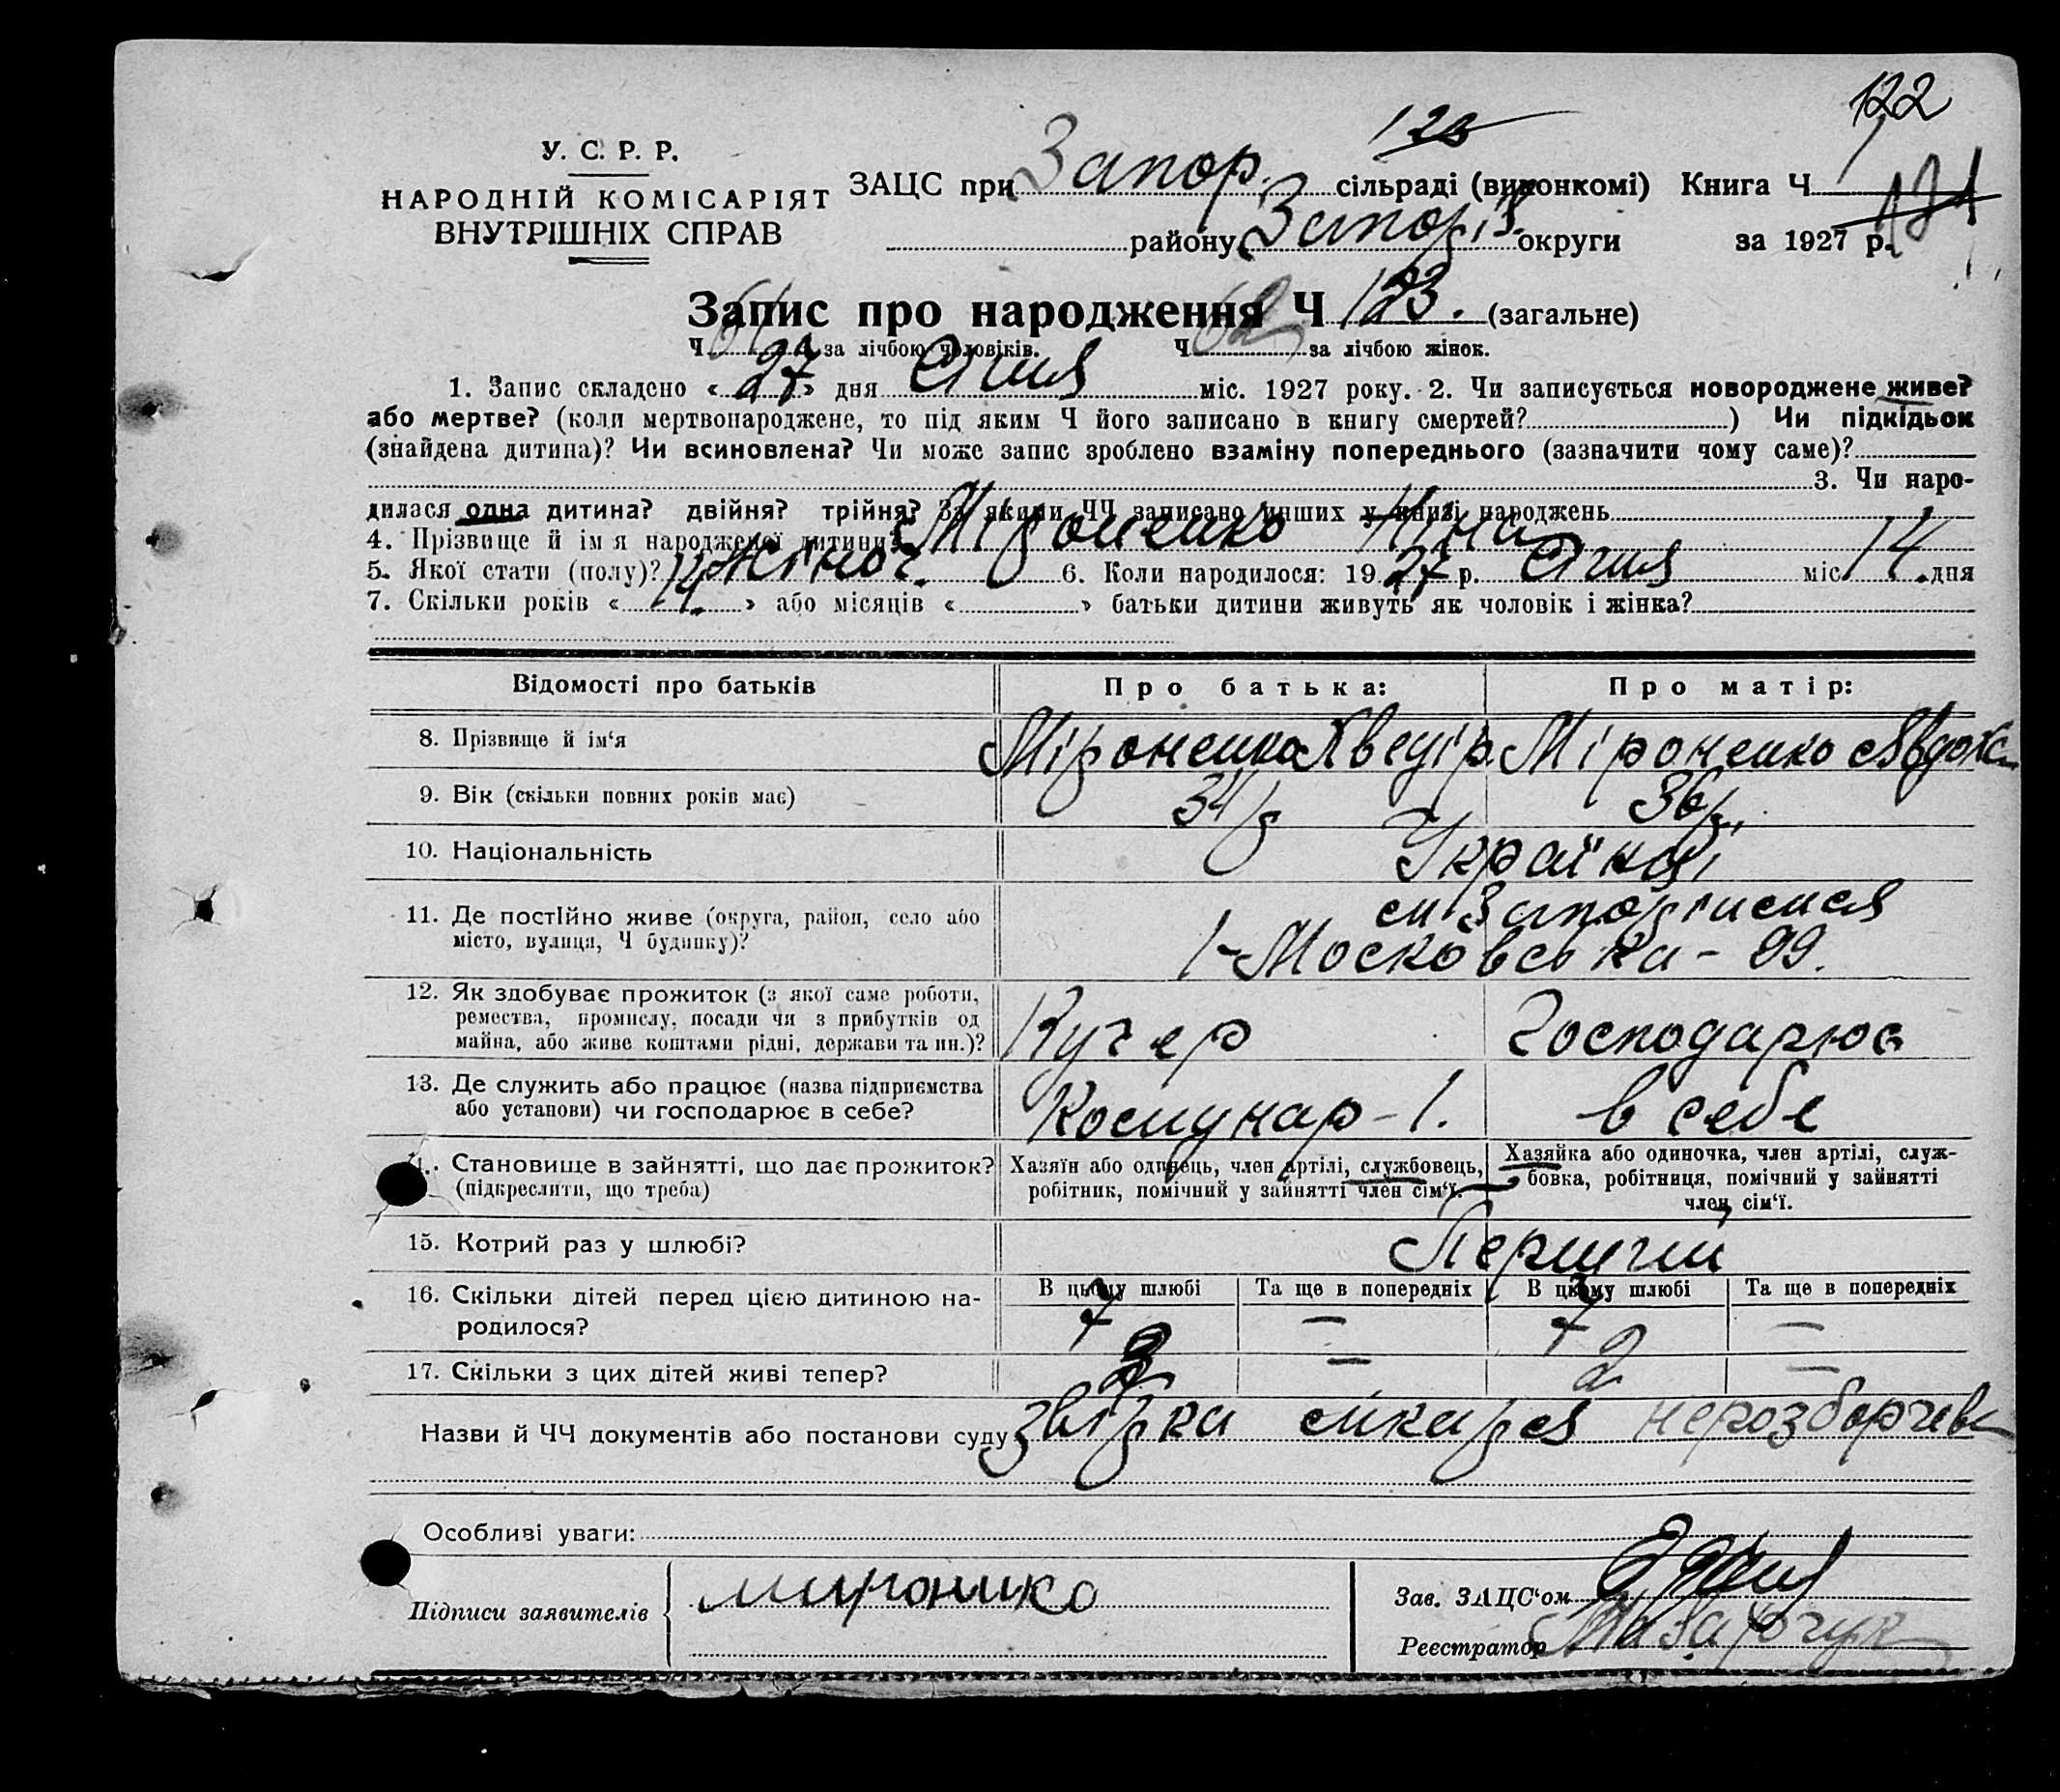 122
123
У. С. Р. Р.
НАРОДНІЙ КОМІСАРІЯТ
ВНУТРІШНІХ СПРАВ
ЗАЦС при Запор. сільраді (виконкомі) Книга Ч 1
121
району Запоріз. округи за 1927 р.
Запис про народження Ч 123. (загальне)
Ч 61 за лічбою чоловіків. Ч 62 за лічбою жінок.
1. Запис складено «27» дня Січня міс. 1927 року. 2. Чи записується новороджене живе?
або мертве? (коли мертвонароджене, то під яким Ч його записано в книгу смертей?) Чи підкідьок
(знайдена дитина)? Чи всиновлена? Чи може запис зроблено взаміну попереднього (зазначити чому саме)?
3. Чи наро-
дилася одна дитина? двійня? трійня? За якими ЧЧ записано инших у книзі народжень
4. Прізвище й ім'я народженої дитини Міроненко Ніна
5. Якої стати (полу)? Жіноч. 6. Коли народилося: 1927 р. Січня міс. 14 дня
7. Скільки років «14.» або місяців « » батьки дитини живуть як чоловік і жінка?
Відомості про батьків Про батька: Про матір:
8. Прізвище й ім'я Міроненко Хведір Міроненко Явдокі
9. Вік (скільки повних років має) 34 р 36 р.
10. Національність Українці
11. Де постійно живе (округа, район, село або
місто, вулиця, Ч будинку)?
м Запоріжжя
1-Московська - 99.
12. Як здобуває прожиток (з якої саме роботи,
ремества, промислу, посади чи з прибутків од
майна, або живе коштами рідні, держави та ин.)?
Кучер Господарює
13. Де служить або працює (назва підприємства
або установи) чи господарює в себе?
Комунар - 1. в себе
14. Становище в зайнятті, що дає прожиток?
(підкреслити, що треба)
Хазяїн або одинець, член артілі, службовець,
робітник, помічний у зайнятті член сім'ї.
Хазяйка або одиночка, член артілі, служ-
бовка, робітниця, помічний у зайнятті
член сім'ї.
15. Котрий раз у шлюбі? Перший
16. Скільки дітей перед цією дитиною на-
родилося?
В цьому шлюбі Та ще в попередніх В цьому шлюбі Та ще в попередніх
7 — 7 —
17. Скільки з цих дітей живі тепер? 2 — 2 —
Назви й ЧЧ документів або постанови суду звірка лікаря нерозборчева
Особливі уваги:
Підписи заявителів мироника
Зав. ЗАЦС'ом
Реєстратор